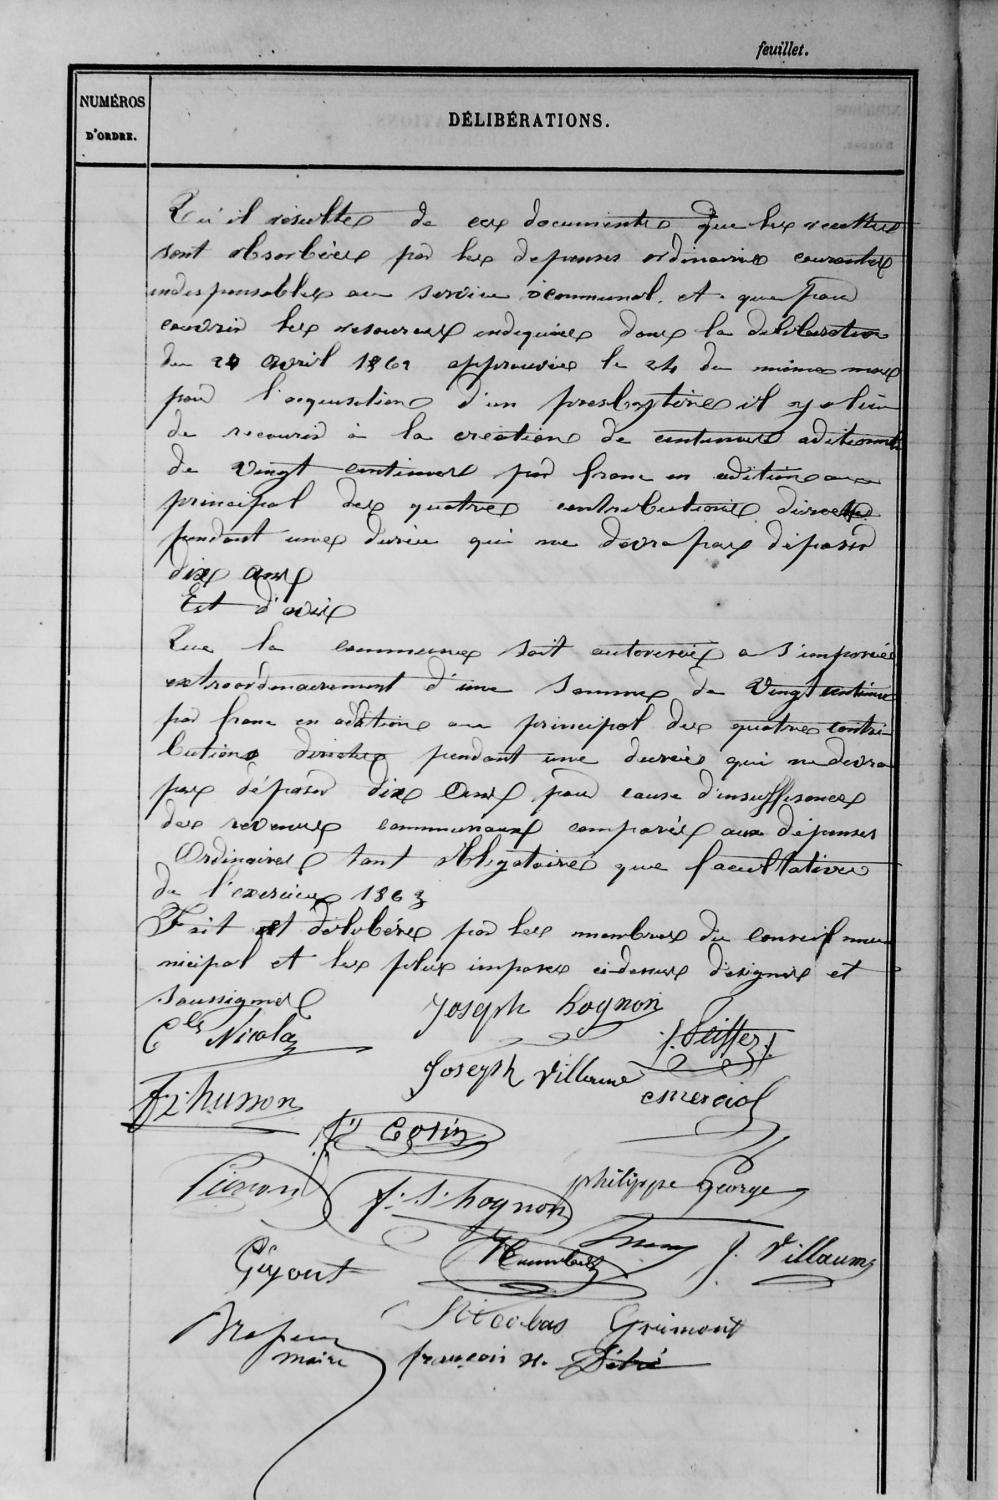 feuillet.
NUMÉROS
D'ORDRE.
DÉLIBÉRATIONS.
Qu'il résultes de ces documents que les recettes
sont absorbées par les depenses ordinaires courantes
indespensables au service communal. et que pour
couvrir les resources indiquées dans la délibération
du 24 avril 1862 approuvée le 24 du même mois
pour l'acquisition d'un presbytère il y a lieu
de recourir à la création de centimes aditionnels
de vingt centimes par franc en adition au
principal des quatres contributions directes
pendant une durée qui ne devra pas dépasser
dix ans
Est d'avis
Que la commune soit autorisée a s'imposée
extraordinairement d'une somme de vingt centimes
par franc en adition au principal des quatres contri-
butions directes pendant une durée qui ne devra
pas dépasser dix ans pour cause d'insuffisance
des revenus communaux comparés aux dépenses
Ordinaires tant obligatoires que facultatives
de l'exercice 1863
Fait et délibéré par les membres du conseil mu-
nicipal et les plus imposés ci-dessus désignés et
soussignés
Cles Nicolas Joseph hognon J. Peiffer
Joseph Villaume
fz husson Mercial
Cosin
Pierron f. S. hognon philippe George
Guyout Humbert J. Villaume
Nicolas Grimont
maire françois N.